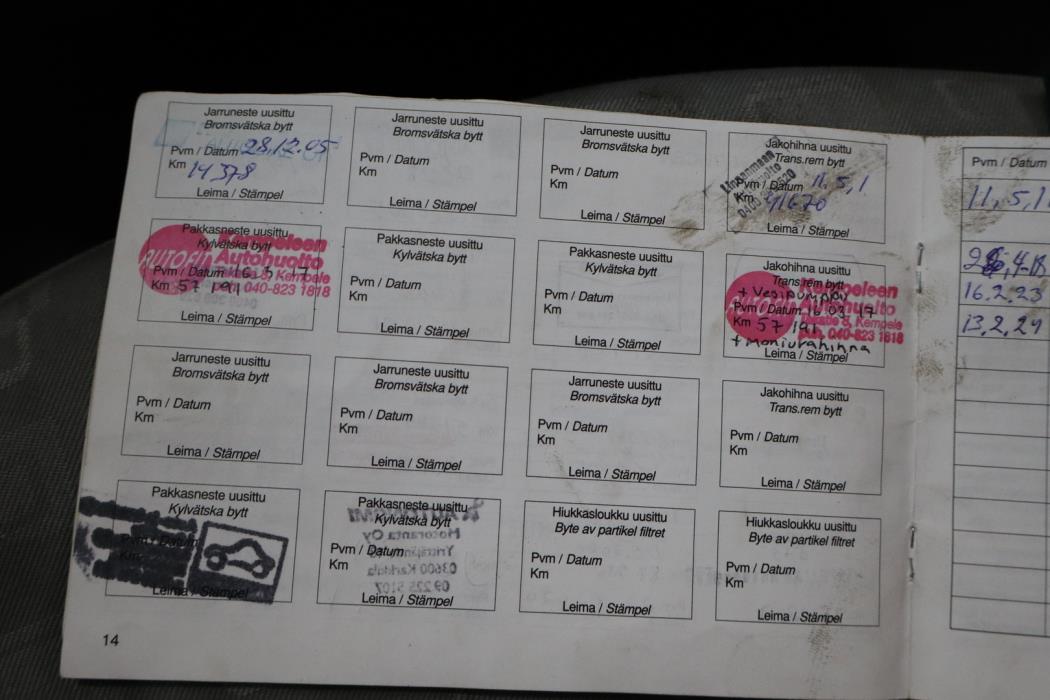 Jarruneste uusittu
Bromsvätska bytt
Pvm / Datum 28.12.05
Km 14 378
Leima / Stämpel
Jarruneste uusittu
Bromsvätska bytt
Pvm / Datum
Km
Leima / Stämpel
Jarruneste uusittu
Bromsvätska bytt
Pvm / Datum
Km
Leima / Stämpel
Jakohihna uusittu
Trans.rem bytt
Pvm / Datum 11.5.1
Km 41670
Leima / Stämpel
Pakkasneste uusittu
Kylvätska bytt
AUTOFIT Kempeleen
Autohuolto
Pvm / Datum 16.3.17
Kempele
Km 57 191
puh. 040-823 1818
Leima / Stämpel
Pakkasneste uusittu
Kylvätska bytt
Pvm / Datum
Km
Leima / Stämpel
Pakkasneste uusittu
Kylvätska bytt
Pvm / Datum
Km
Leima / Stämpel
Jakohihna uusittu
Trans.rem bytt
+ Vesipumppu
AUTOFIT Kempeleen
Autohuolto
Pvm / Datum 16.03.17
Kempele
Km 57 191
puh. 040-823 1818
+ Moniurahihna
Leima / Stämpel
Jarruneste uusittu
Bromsvätska bytt
Pvm / Datum
Km
Leima / Stämpel
Jarruneste uusittu
Bromsvätska bytt
Pvm / Datum
Km
Leima / Stämpel
Jarruneste uusittu
Bromsvätska bytt
Pvm / Datum
Km
Leima / Stämpel
Jakohihna uusittu
Trans.rem bytt
Pvm / Datum
Km
Leima / Stämpel
Pakkasneste uusittu
Kylvätska bytt
Pvm / Datum
Km
Leima / Stämpel
Pakkasneste uusittu
Kylvätska bytt
Pvm / Datum
Km
Leima / Stämpel
Hiukkasloukku uusittu
Byte av partikel filtret
Pvm / Datum
Km
Leima / Stämpel
Hiukkasloukku uusittu
Byte av partikel filtret
Pvm / Datum
Km
Leima / Stämpel
14
Pvm / Datum
11.5.1
16.2.23
13.2.24